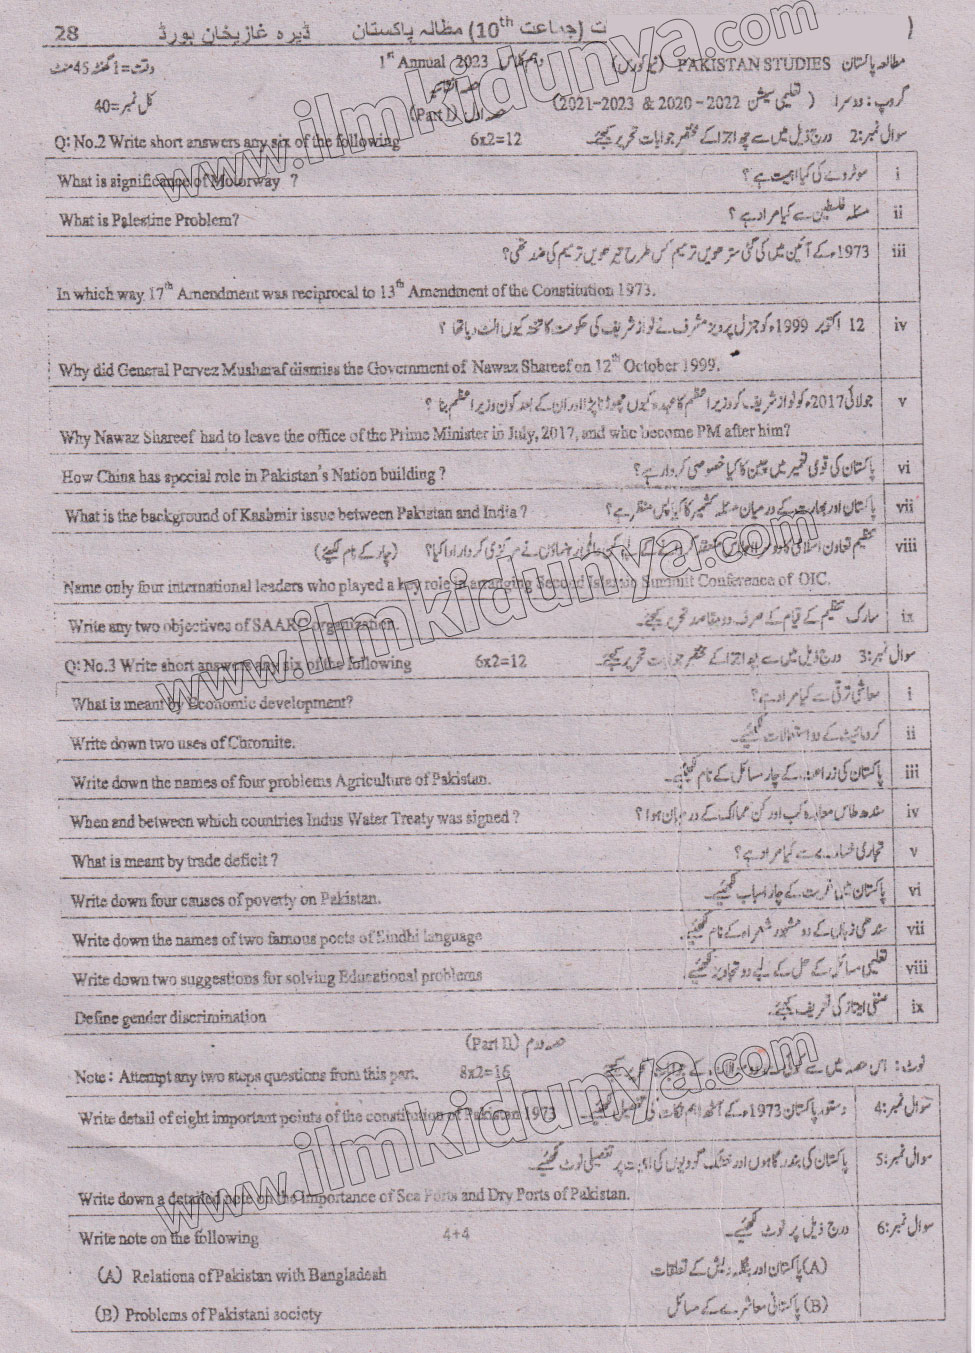 28 ڈیرہ غازیخان بورڈ مطالہ پاکستان (جماعت 10th)
وقت=1 گھنٹہ 45 منٹ 1st Annual 2023 PAKISTAN STUDIES مطالعہ پاکستان
حصہ انشائیہ
کل نمبر=40 حصہ اول (Part I) (2021-2023 & 2020-2022 تعلیمی سیشن) گروپ: دوسرا
Q: No.2 Write short answers any six of the following 6x2=12 سوال نمبر:2 درج ذیل میں سے چھ اجزا کے مختصر جوابات تحریر کیجئے۔
What is significance of Motorway ? موٹروے کی کیا اہمیت ہے ؟ i
What is Palestine Problem? مسئلہ فلسطین سے کیا مراد ہے ؟ ii
1973ء کے آئین میں کی گئی سترھویں ترمیم کس طرح تیرھویں ترمیم کی ضد تھی؟ iii
In which way 17th Amendment was reciprocal to 13th Amendment of the Constitution 1973.
12 اکتوبر 1999ء کو جنرل پرویز مشرف نے نواز شریف کی حکومت کا تختہ کیوں الٹ دیا تھا ؟ iv
Why did General Pervez Musharaf dismiss the Government of Nawaz Shareef on 12th October 1999.
جولائی 2017ء کو نواز شریف کو وزیراعظم کا عہدہ کیوں چھوڑنا پڑا اور ان کے بعد کون وزیراعظم بنا ؟ v
Why Nawaz Shareef had to leave the office of the Prime Minister in July, 2017, and who become PM after him?
How China has special role in Pakistan's Nation building ? پاکستان کی قومی تعمیر میں چین کا کیا خصوصی کردار ہے؟ vi
What is the background of Kashmir issue between Pakistan and India ? پاکستان اور بھارت کے درمیان مسئلہ کشمیر کا کیا پس منظر ہے؟ vii
تنظیم تعاون اسلامی کا دوسرا اجلاس منعقد کرانے کے لیے کن عالمی راہنماؤں نے مرکزی کردار ادا کیا؟ (چار کے نام لکھیے) viii
Name only four international leaders who played a key role in arranging Second Islamic Summit Conference of OIC.
Write any two objectives of SAARC organization. سارک تنظیم کے قیام کے صرف دو مقاصد تحریر کیجئے۔ ix
Q: No.3 Write short answers any six of the following 6x2=12 سوال نمبر:3 درج ذیل میں سے چھ اجزا کے مختصر جوابات تحریر کیجئے۔
What is meant by Economic development? معاشی ترقی سے کیا مراد ہے؟ i
Write down two uses of Chromite. کرومائیٹ کے دو استعمالات لکھیئے۔ ii
Write down the names of four problems Agriculture of Pakistan. پاکستان کی زراعت کے چار مسائل کے نام لکھیئے۔ iii
When and between which countries Indus Water Treaty was signed ? سندھ طاس معاہدہ کب اور کن ممالک کے درمیان ہوا ؟ iv
What is meant by trade deficit ? تجارتی خسارے سے کیا مراد ہے ؟ v
Write down four causes of poverty on Pakistan. پاکستان میں غربت کے چار اسباب لکھیئے۔ vi
Write down the names of two famous poets of Sindhi language سندھی زبان کے دو مشہور شعراء کے نام لکھیئے۔ vii
Write down two suggestions for solving Educational problems تعلیمی مسائل کے حل کے لیے دو تجاویز لکھیئے۔ viii
Define gender discrimination صنفی امتیاز کی تعریف کیجئے۔ ix
حصہ دوم (Part II)
Note : Attempt any two steps questions from this part. 8x2=16 نوٹ: اس حصہ میں سے کوئی سے دو سوالات کے جوابات تحریر کیجئے
Write detail of eight important points of the constitution of Pakistan 1973 دستور پاکستان 1973ء کے آٹھ اہم نکات کی تفصیل لکھیئے۔ سوال نمبر:4
پاکستان کی بندرگاہوں اور خشک گودیوں کی اہمیت پر تفصیلی نوٹ لکھیئے۔ سوال نمبر:5
Write down a detailed note on the importance of Sea Ports and Dry Ports of Pakistan.
Write note on the following 4+4 درج ذیل پر نوٹ لکھیئے۔ سوال نمبر:6
(A) Relations of Pakistan with Bangladesh (A) پاکستان اور بنگلہ دیش کے تعلقات
(B) Problems of Pakistani society (B) پاکستانی معاشرے کے مسائل
www.ilmkidunya.com
www.ilmkidunya.com
www.ilmkidunya.com